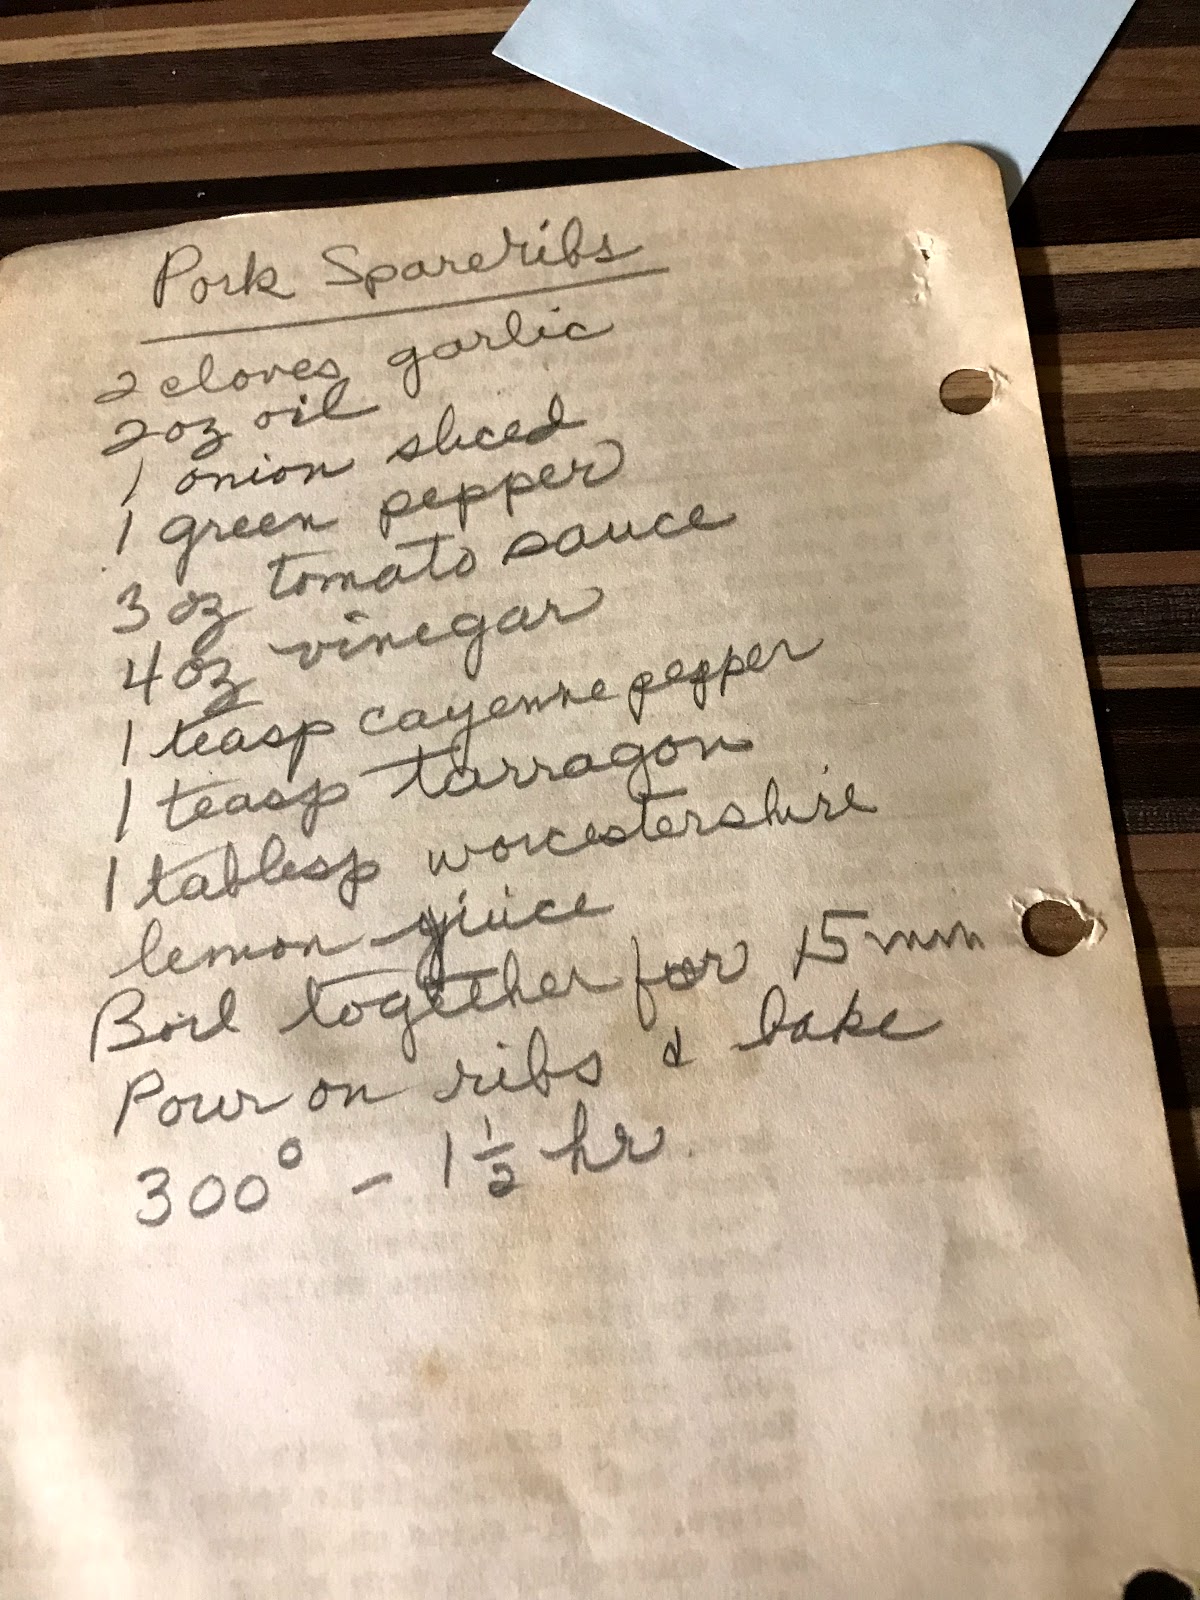 Pork Spareribs
2 cloves garlic
2 oz oil
1 onion sliced
1 green pepper
3 oz tomato sauce
4 oz vinegar
1 teasp cayenne pepper
1 teasp tarragon
1 tablesp worcestershire
lemon juice
Boil together for 15 min
Pour on ribs & bake
300° - 1 1/2 hr.